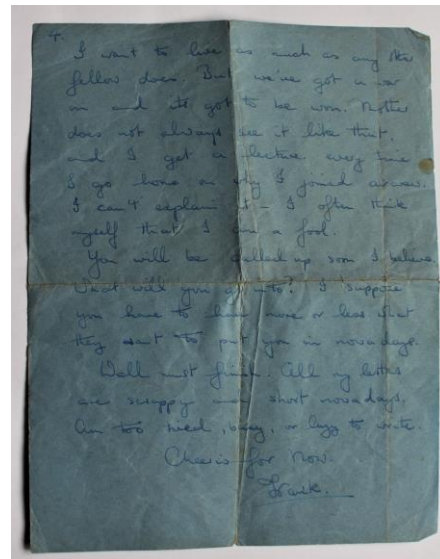 4.
I want to live as much as any other
fellow does. But we've got a war
on and its got to be won. Mother
does not always see it like that,
and I get a lecture every time
I go home on why I joined aircrew.
I can't explain it - I often think
myself that I am a fool.
You will be called up soon I believe.
What will you go into? I suppose
you have to have more or less what
they want to put you in nowadays.
Well must finish. All my letters
are scrappy and short nowadays.
Am too tired, busy, or lazy to write.
Cheerio for now.
Frank.